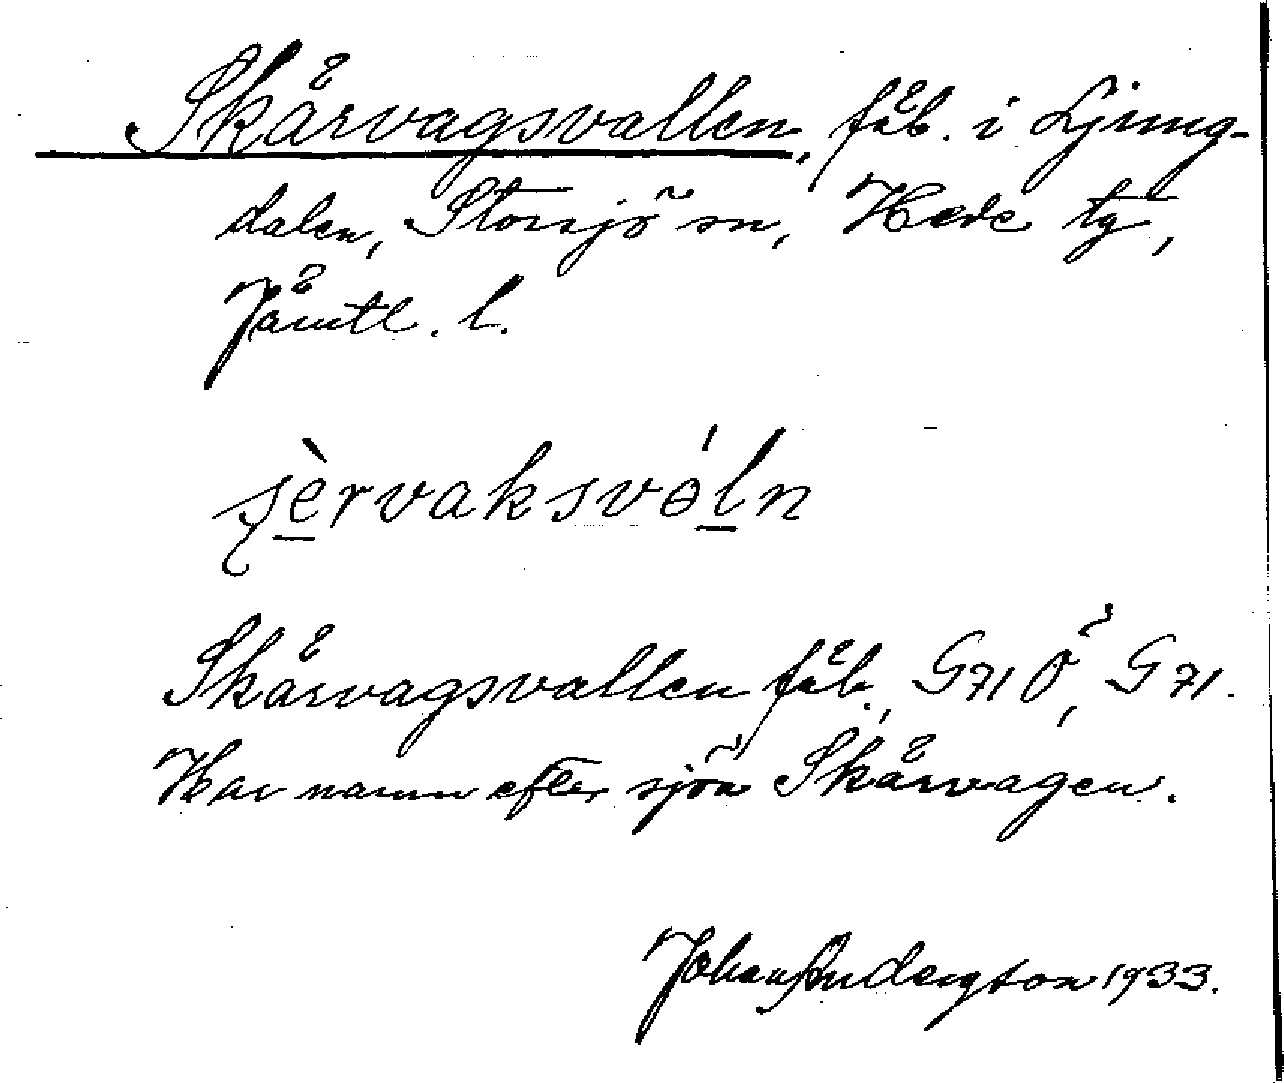 Skärvagsvallen, fäb. i Ljung-
dalen, Storsjö sn, Hede tg,
Jämtl. l.
ʂè̱rvaksvɵ́ḻn
Skärvagsvallen fäb., G71 Ö, G 71.
Har namn efter sjön Skärvagen.
Johan Andersson 1933.